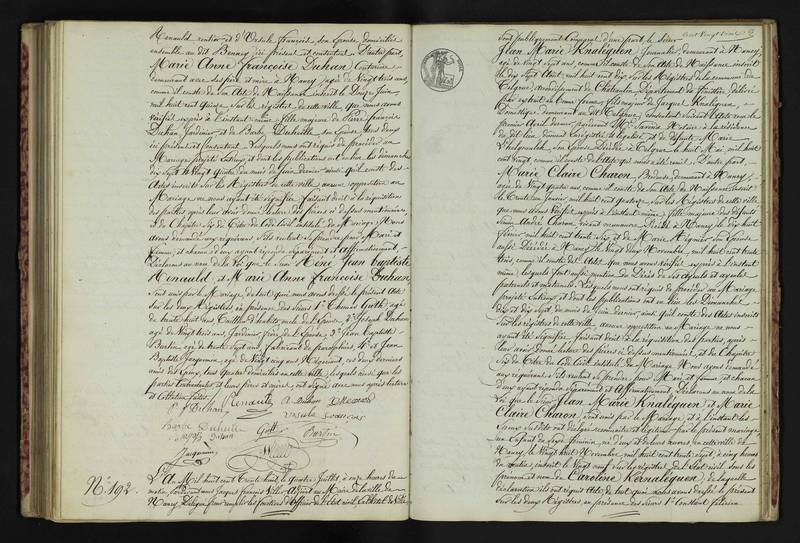 Renauld rentier et d'Ursule François, son Epouse domiciliés
ensemble au dit Benney ici présens et consentant D'autre part,
Marie Anne Françoise Duhan Couturière
demeurant avec ses père et mère à Nancy, agée de Vingt trois ans,
comme il conste de son Acte de Naissance inscrit le Douze Juin,
mil huit cent quinze sur les registres de cette ville, que nous avons
vérifié exprès à l'instant même, fille majeure de Pierre François
Duhan Jardinier, et de Barbe Duhuille son Epouse, tous deux
ici présens et consentant. Lesquels nous ont requis de procéder au
Mariage projeté entr'eux et dont les publications ont eu lieu les dimanches
dix sept et Vingt quatre du mois de Juin dernier, ainsi qu'il conste des
Actes inscrits sur les Registres de cette ville, aucune opposition au
Mariage ne nous ayant été signifiée, faisant droit à la réquisition
des parties après leur avoir donné lecture des pièces ci dessus mentionnées
et du Chapitre Six du titre du Code Civil intitulé du Mariage Nous
avons demandé aux requérans s'ils veulent se prendre pour Mari et
femme, et chacun d'eux ayant répondu séparément et Affirmativement,
Déclarons au nom de la loi que le Sieur René Jean Baptiste
Renauld, et Marie Anne Françoise Duhan,
Sont unis par le Mariage, de tout quoi nous avons dressé le présent Acte
sur les deux Registres, en présence des Sieurs 1° Charles Gotté, agé
de trente huit ans
agé de Vingt trois ans, Jardinier, frère de l'Epouse, 3° Jean Baptiste
Bertin, agé de trente Sept ans, fabricant de parapluies, 4° et Jean
Baptiste Jacquemin, agé de Vingt cinq ans Négociant, ces deux derniers
amis des Epoux, tous quatre domiciliés en cette ville, lesquels ainsi que les
parties contractantes et leurs pères et mères, ont signé avec nous après lecture
et Collation faites.
Renauld A Duhan
P f Duhan Ursule François
Barbe Duhuille
Joseph Duhan Gotté Bertin
Jacquemin
N° 192. L'An Mil huit cent trente huit le quatre Juillet, à onze heures du
matin, Pardevant nous Jacques François Adjoint au Maire de la ville de
Nancy Délégué pour remplir les fonctions d'Officier de l'Etat civil, en l'hôtel de Ville
Sont publiquement Comparus d'une part, le Sieur
Jean Marie Knaléguen, Journalier, demeurant à Nancy,
agé de Vingt sept ans, comme il conste de son Acte de Naissance inscrit
le dix Sept Août, mil huit cent dix, sur les Registres de la commune de
Telgruc, arrondissement de Châteaulin, Département du Finistère, délivré
par extrait en bonne forme, fils majeur de Jacques Knaléguen,
Domestique demeurant au dit Telgruc, consentant suivant Acte reçu le
premier Avril dernier, pardevant Me Savina Notaire à la résidence
du dit lieu, dûment enregistré et légalisé, et de défunte Marie
son Epouse, Décédée à Telgruc le huit Mai mil huit
cent vingt, comme il conste de l'Acte qui nous a été remis. D'autre part,
Marie Claire Charon, Brodeuse, demeurant à Nancy,
agée de Vingt quatre ans comme il conste de son Acte de Naissance inscrit
le trente un Janvier mil huit cent quatorze, sur les Registres de cette ville
que nous avons vérifié exprès à l'instant même, fille majeure des défunts
Simon André Charon, vivant manœuvre, Décédé à Nancy, le dix huit
février, mil huit cent trente six, et de Marie Mignier son Epouse
aussi Décédée à Nancy, le Vingt deux Novembre, mil huit cent trente
trois, comme il conste des Actes que nous avons vérifiés exprès à l'instant
même, lesquels font aussi mention du Décès de ses Ayeuls et ayeules
paternels et maternels. Lesquels nous ont requis de procéder au Mariage
projeté entr'eux, et dont les publications ont eu lieu les Dimanches
dix et dix Sept du mois de Juin Dernier, ainsi qu'il conste des Actes inscrits
Sur les registres de cette ville, aucune opposition au Mariage ne nous
ayant été Signifiée, faisant droit à la réquisition des parties, après
leur avoir donné lecture des pièces ci dessus mentionnées, et du Chapitre
Six du titre du Code Civil intitulé du Mariage, Nous avons demandé
aux requérans s'ils veulent se prendre pour Mari et femme, et chacun
D'eux ayant répondu Séparément et Affirmativement, Déclarons au nom de la
Loi que le Sieur Jean Marie Knaléguen et Marie
Claire Charon, sont unis par le Mariage, et à l'instant les
Epoux Susdits ont déclaré reconnaître et légitimer par le présent mariage
un Enfant du Sexe féminin, né d'eux et de leurs œuvres, en cette ville de
Nancy, le Vingt huit Novembre, mil huit cent trente sept, à cinq heures
du matin, inscrit le Vingt neuf sur les registres de l'Etat civil sous les
prénoms et nom de Caroline Kernaléguen, de laquelle
Déclaration ils ont requis Acte, de tout quoi nous avons dressé le présent
Sur les deux Registres, en présence des Sieurs 1° Constant